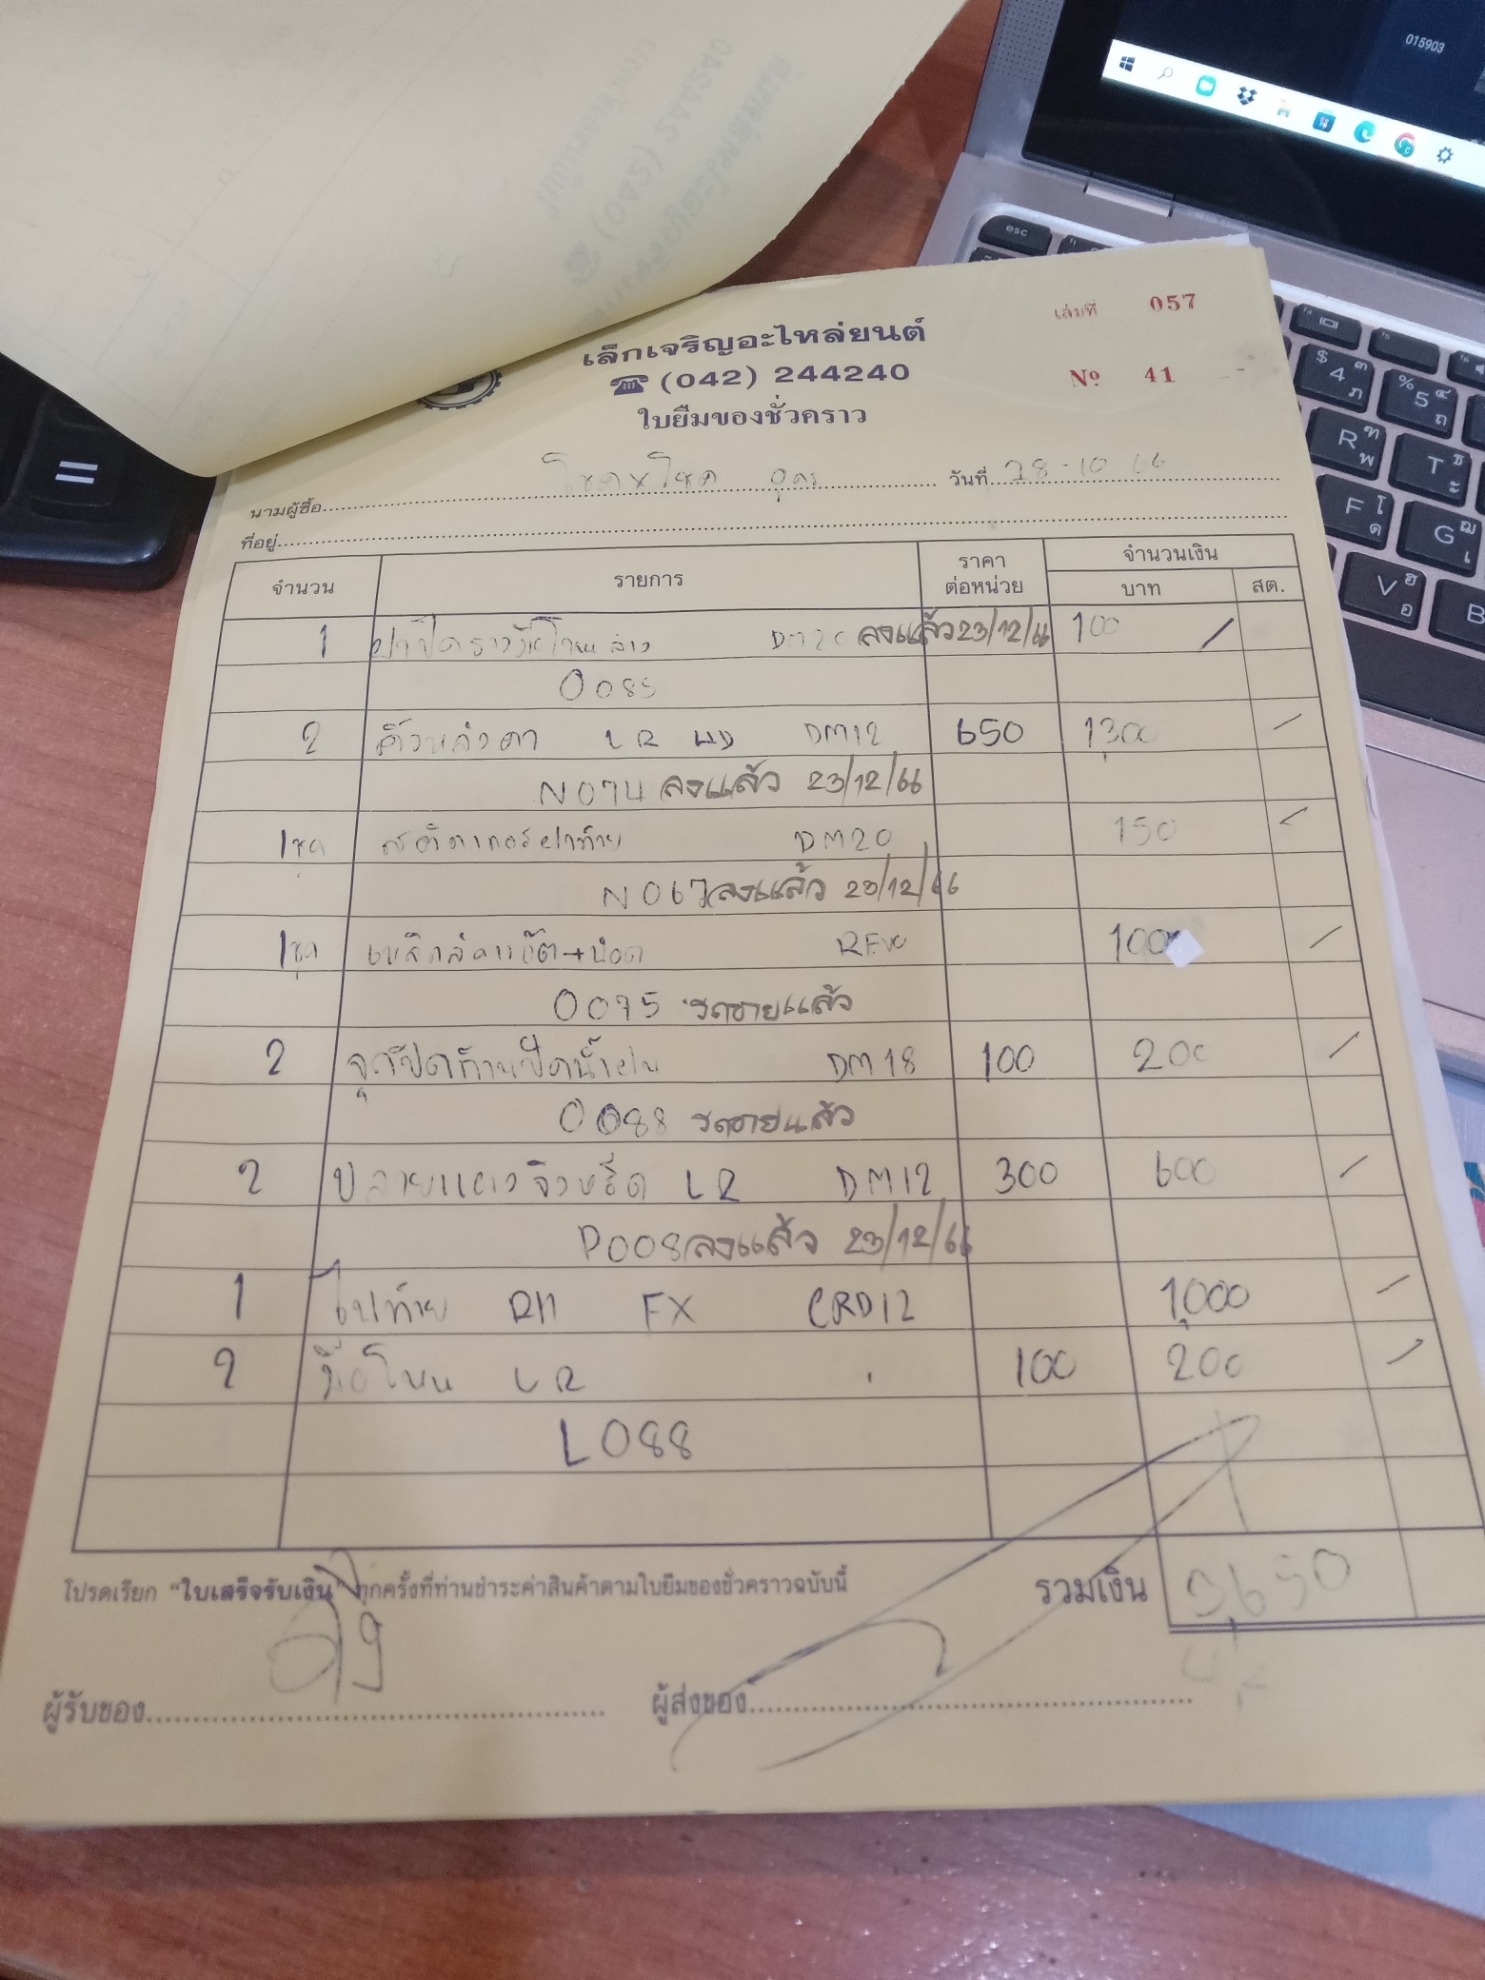 015903
เล่มที่ 057
เล็กเจริญอะไหล่ยนต์
(042) 244240
Nº 41
ใบยืมของชั่วคราว
นามผู้ซื้อ โชคxโชค อุดร วันที่ 28-10-66
ที่อยู่
จำนวน รายการ ราคาต่อหน่วย จำนวนเงิน
บาท สต.
1 DM20 ลงแล้ว 23/12/66 100 /
0085
2 คิ้วหลังคา LR DM12 650 1300 /
N074 ลงแล้ว 23/12/66
1ชุด DM20 150 /
N067 ลงแล้ว 23/12/66
1ชุด REVO 100 /
0075 รถขายแล้ว
2 จุกปิดก้านปัดน้ำฝน DM18 100 200 /
0088 รถขายแล้ว
2 LR DM12 300 600 /
P008 ลงแล้ว 23/12/66
1 ไฟท้าย RH FX CRD12 1,000 /
2 มือโหน LR 100 200 /
L088
โปรดเรียก "ใบเสร็จรับเงิน" ทุกครั้งที่ท่านชำระค่าสินค้าตามใบยืมของชั่วคราวฉบับนี้
รวมเงิน 3,650
ผู้รับของ ผู้ส่งของ
esc